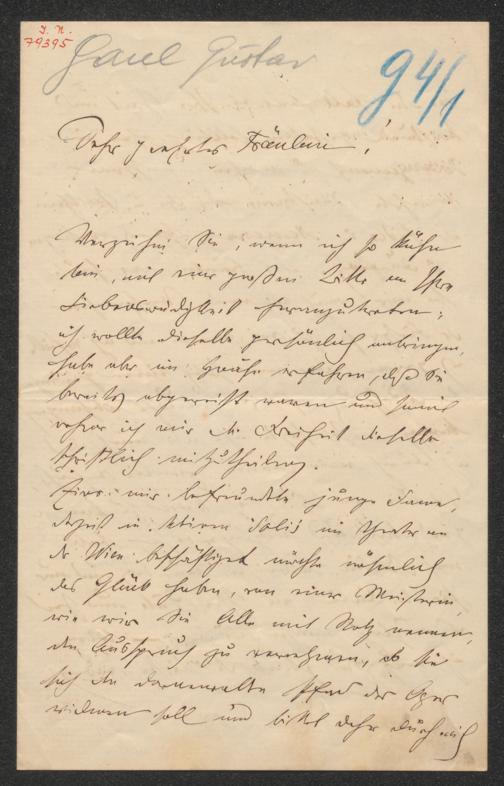 I. N.
79395
Gaul Gustav
94/1
Sehr geehrtes Fräulein!
Verzeihen Sie, wenn ich so kühn
bin, mit einer großen Bitte an Ihre
Liebenswürdigkeit heranzutreten;
ich wollte dieselbe persönlich anbringen,
habe aber im Hause erfahren, daß Sie
bereits abgereist waren und somit
nehme ich mir die Freiheit dieselbe
schriftlich mitzutheilen.
Eine mir befreundete junge Dame,
derzeit in kleinen Solis im Theater an
der Wien beschäftiget möchte nähmlich
das Glück haben, von einer Meisterin,
wie wir Sie Alle mit Stolz nennen,
den Ausspruch zu vernehmen, ob sie
sich dem dornenvollen Pfad der Oper
widmen soll und bittet daher durch mich